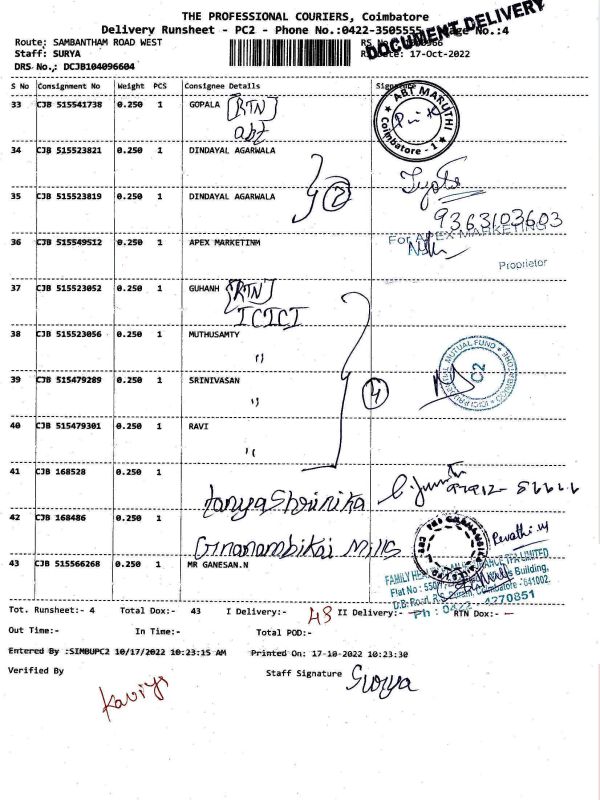 THE PROFESSIONAL COURIERS, Coimbatore
Delivery Runsheet - PC2 - Phone No.:0422-3505555 Page No.:4
DOCUMENT DELIVERY
Route: SAMBANTHAM ROAD WEST
Staff: SURYA
Date: 17-Oct-2022
DRS No.; DCJB104096604
S No Consignment No Weight PCS Consignee Details Signature
33 CJB 515541738 0.250 1 GOPALA RTN
abt
ABI MARUTHI
Coimbatore - 1
34 CJB 515523821 0.250 1 DINDAYAL AGARWALA
2
35 CJB 515523819 0.250 1 DINDAYAL AGARWALA
9363103603
36 CJB 515549512 0.250 1 APEX MARKETINM
For APEX MARKETING
Proprietor
37 CJB 515523052 0.250 1 GUHANH RTN
ICICI
38 CJB 515523056 0.250 1 MUTHUSAMTY
"
39 CJB 515479289 0.250 1 SRINIVASAN
"
4
ICICI PRUDENTIAL MUTUAL FUND
C2
COIMBATORE
40 CJB 515479301 0.250 1 RAVI
"
41 CJB 168528 0.250 1
tanyaShrinika
42 CJB 168486 0.250 1
Gnanambikai Mills
Revathi.M
43 CJB 515566268 0.250 1 MR GANESAN.N
FAMILY HEALTH PLAN INSURANCE TPA LIMITED
Building,
D.B. Road, R.S. Puram, Coimbatore - 641002.
Ph : 0422 - 4270851
Tot. Runsheet:- 4 Total Dox:- 43 I Delivery:- 43 II Delivery:- RTN Dox:-
Out Time:- In Time:- Total POD:-
Entered By :SIMBUPC2 10/17/2022 10:23:15 AM Printed On: 17-10-2022 10:23:30
Verified By Staff Signature Surya
Kaviya